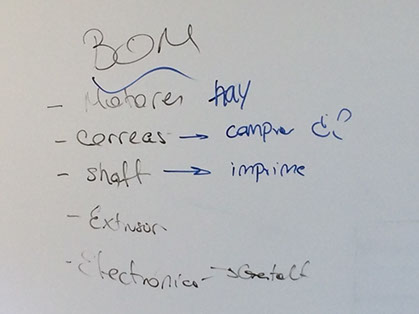 BOM
- Motores hay
- correas → comprar ¿?
- shaft → imprime
- Extrusor
- Electronica →